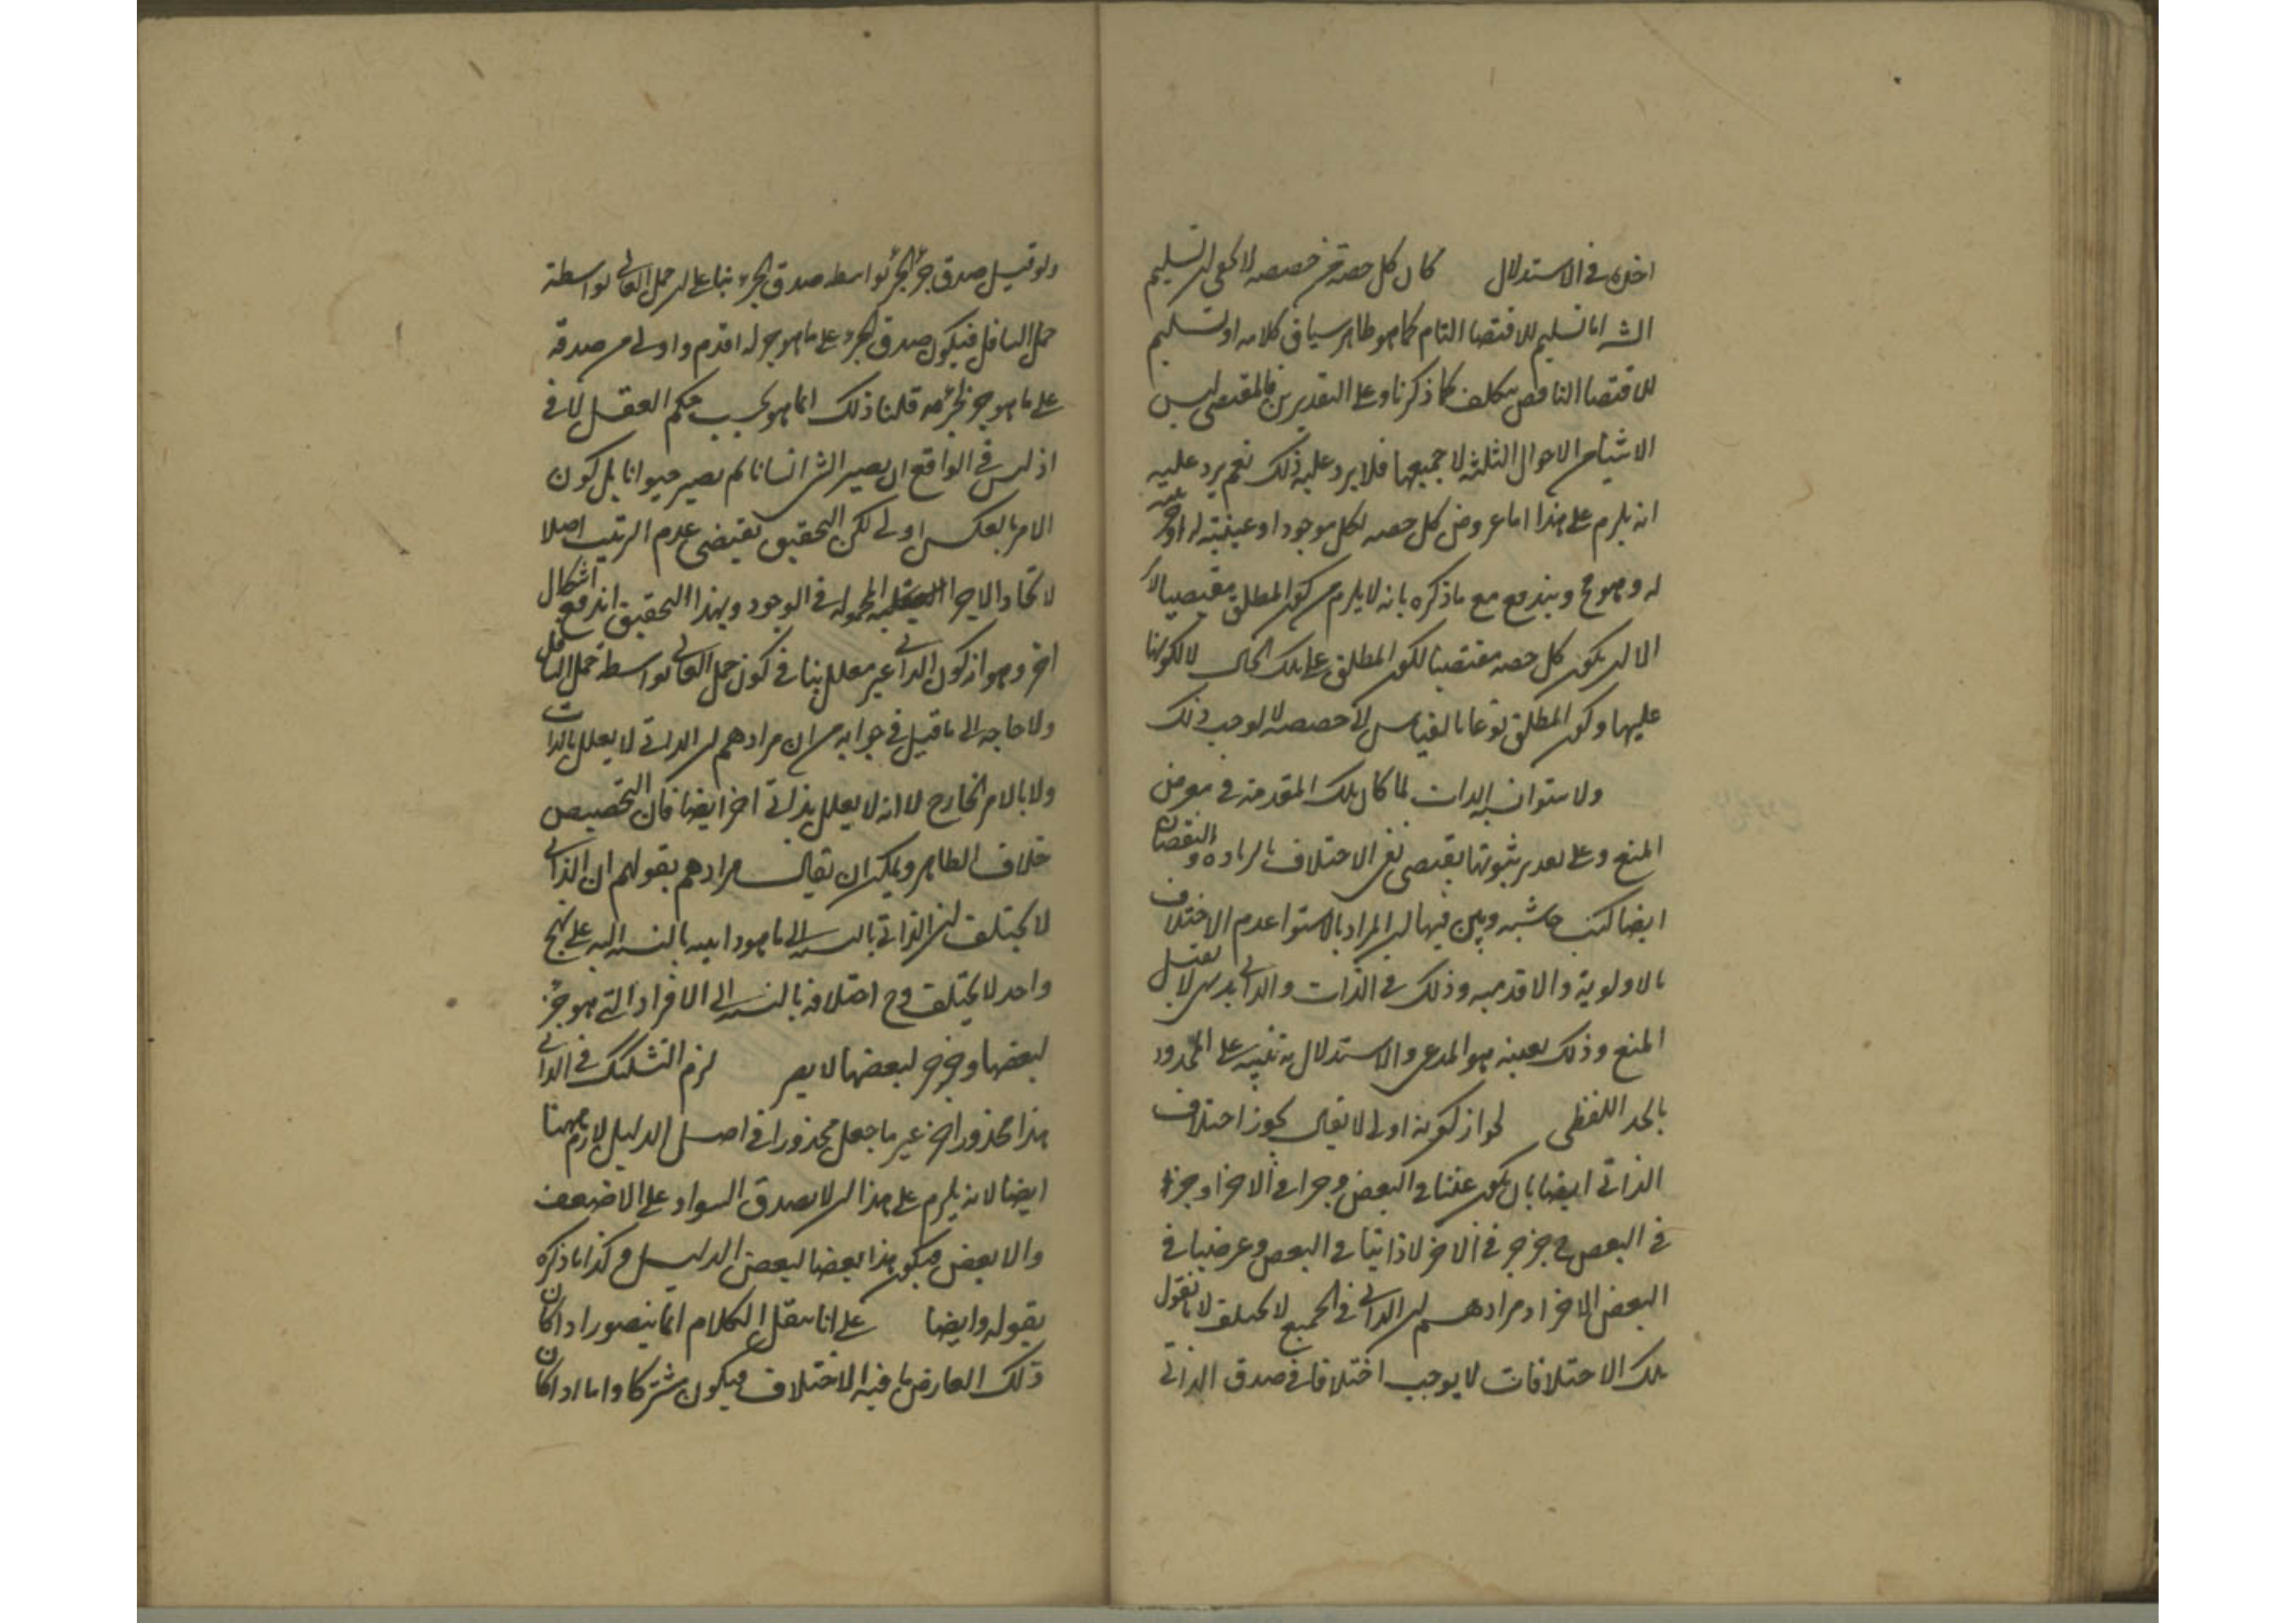 اخذه في الاستدلال كان كل حصة من حصصه لا يخفى ان تسليم
الشه اما تسليم للاقتضا التام كما هو ظاهر سياق كلامه او تسليم
للاقتضا الناقص بتكلف كما ذكرنا وعلى التقديرين فالمقتضى ليس
الا شيئا من الاحوال الثلثة لا جميعها فلا يرد عليه ذلك نعم يرد عليه
انه يلزم على هذا اما عروض كل حصه لكل موجود او عينيته له او جزئيته
له وهو مح ويندفع مع ما ذكره بانه لا يلزم من كون المطلق مقتضيا لا
الا ان يكون كل حصه مقتضيا لكون المطلق على تلك الحال لا لكونها
عليها وكون المطلق نوعا بالقياس الى حصصه لا يوجب ذلك
ولاستواء نسبة الذات لما كان تلك المقدمة في معرض
المنع وعلى تقدير ثبوتها يقتضى نفى الاختلاف بالزيادة والنقصان
ايضا كتب حاشيه وبين فيها ان المراد بالاستوا عدم الاختلاف
بالاولوية والاقدميه وذلك في الذات والذاتي بديهى لا يقبل
المنع وذلك بعينه هو المدعى والاستدلال به تنبيه على المحدود
بالحد اللفظى لجواز كونه اولى لا يقال يجوز اختلاف
الذاتي ايضا بان يكون عينا في البعض وجزا في الاخر او جزء
في البعض وجزء جزء في الاخر لا ذاتيا في البعض وعرضيا في
البعض الاخر اذ مرادهم ان الذاتي في الجميع لا يختلف لانا نقول
تلك الاختلافات لا يوجب اختلافا في صدق الذاتي
ولو قيل صدق جزء الجزء بواسطه صدق الجزء بناء على ان حمل العالي بواسطة
حمل السافل فيكون صدق الجزء على ما هو جزء له اقدم واولى من صدقه
على ما هو جزء لجزئه قلنا ذلك انما هو بحسب حكم العقل لا في
اذ ليس في الواقع ان يصير الشئ انسانا ثم يصير حيوانا بل كون
الامر بالعكس اولى لكن التحقيق يقتضى عدم الترتيب اصلا
لاتحاد الاجزا العقليه المحموله في الوجود وبهذا التحقيق اندفع اشكال
اخر وهو ان كون الذاتي غير معلل ينافي كون حمل العالي بواسطه حمل السافل
ولا حاجه الى ما قيل في جوابه من ان مرادهم ان الذاتي لا يعلل بالذات
ولا بالامر الخارج لا انه لا يعلل بذاتي اخر ايضا فان التخصيص
خلاف الظاهر ويمكن ان يقال مرادهم بقولهم ان الذاتي
لا يختلف ان الذاتي بالنسبه الى ما هو ذاتيه بالنسبه اليه على نهج
واحد لا يختلف وح اختلافه بالنسبه الى الافراد التي هو جزء
لبعضها وجزء جزء لبعضها لا يضر لزم التشكيك في الذاتي
هذا محذور اخر غير ما جعل محذورا في اصل الدليل لازم ههنا
ايضا لانه يلزم على هذا ان لا يصدق السواد على الاضعف
والا بعض فيكون هذا بعضا لبعض الدليل وكذا ما ذكره
بقوله وايضا على انا ننقل الكلام انما يتصور اذا كان
ذلك العارض ما فيه الاختلاف فيكون مشتركا واما اذا كان